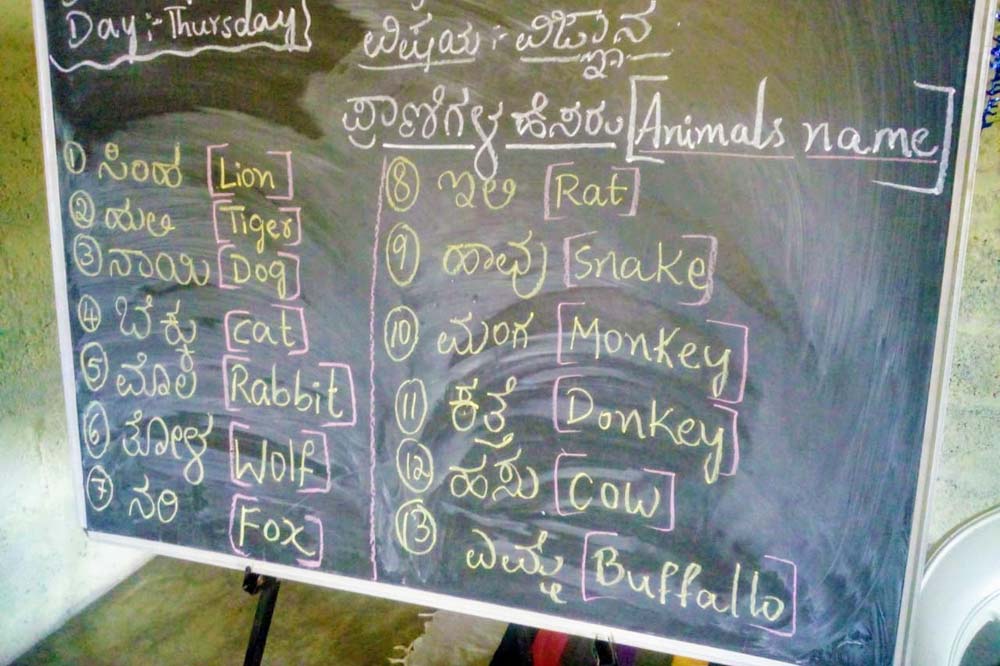 Day:- Thursday
ವಿಷಯ :- ವಿಜ್ಞಾನ
ಪ್ರಾಣಿಗಳ ಹೆಸರು [Animals name]
① ಸಿಂಹ [Lion]
② ಹುಲಿ [Tiger]
③ ನಾಯಿ [Dog]
④ ಬೆಕ್ಕು [cat]
⑤ ಮೊಲ [Rabbit]
⑥ ತೋಳ [Wolf]
⑦ ನರಿ [Fox]
⑧ ಇಲಿ [Rat]
⑨ ಹಾವು [Snake]
⑩ ಮಂಗ [Monkey]
⑪ ಕತ್ತೆ [Donkey]
⑫ ಹಸು [Cow]
⑬ ಎಮ್ಮೆ [Buffallo]